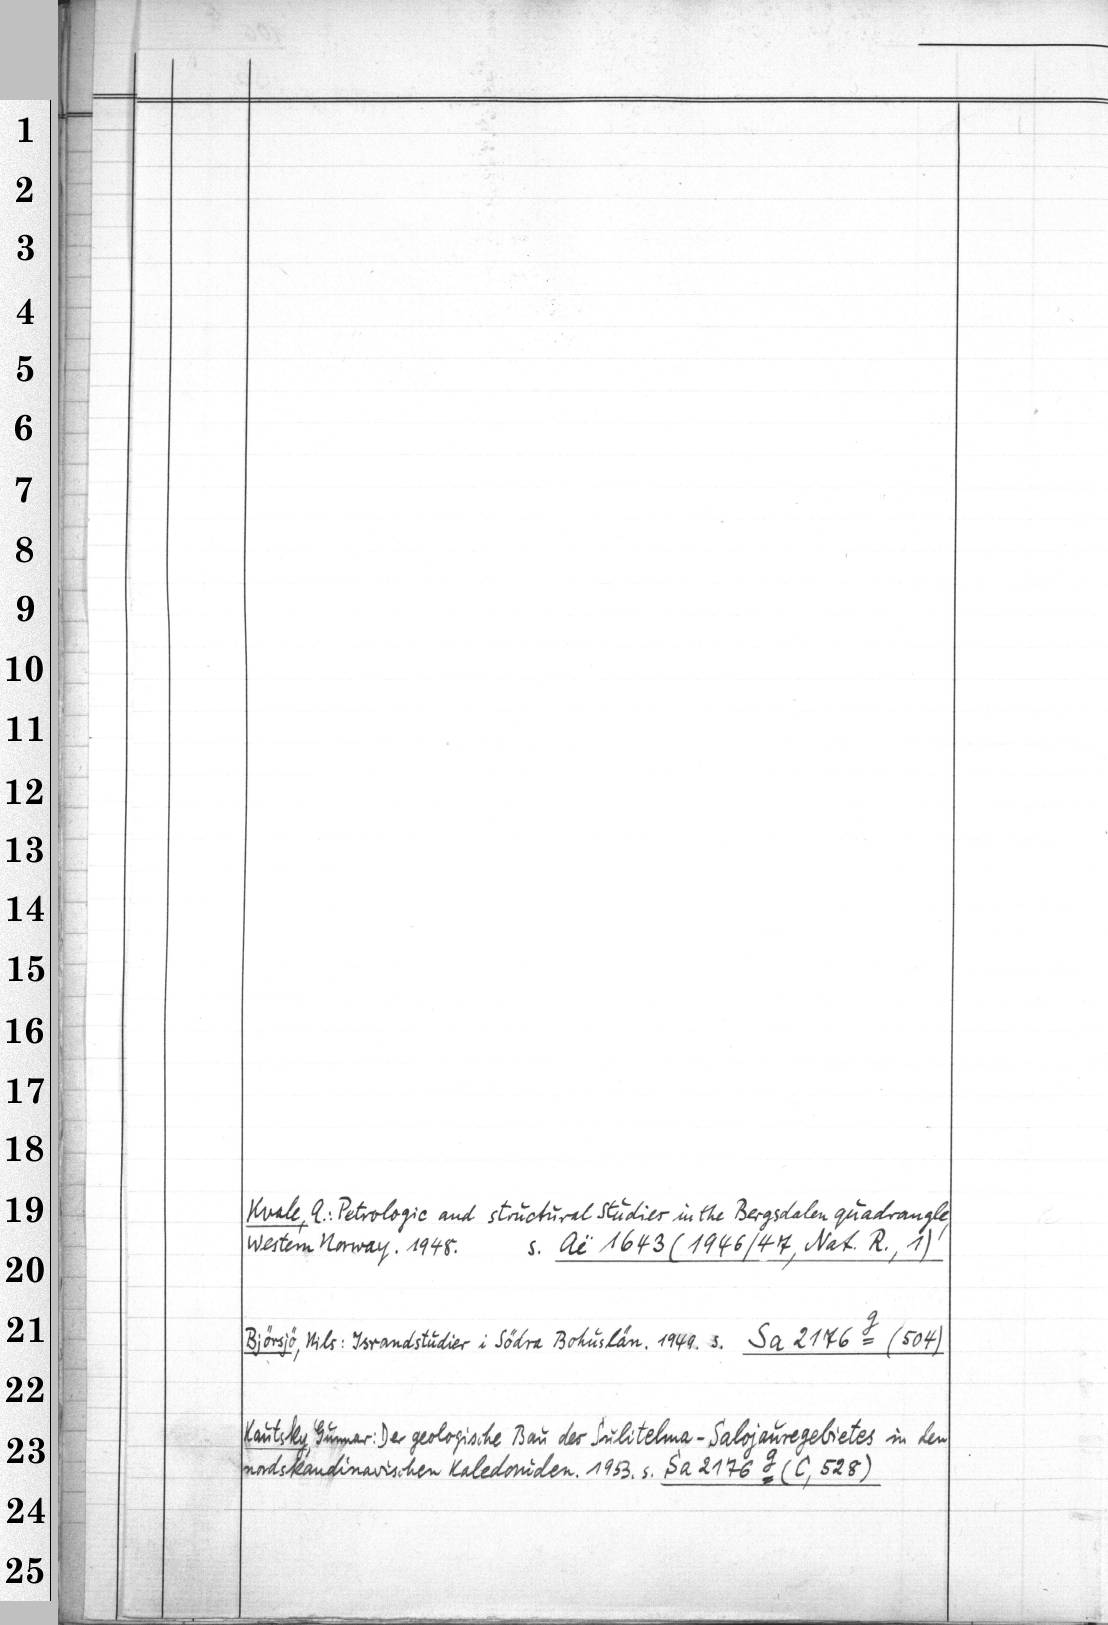 1
2
3
4
5
6
7
8
9
10
11
12
13
14
15
16
17
18
19
Kvale, A.: Petrologic and structural Studies in the Bergsdalen quadrangle,
Western Norway. 1948. s. Aë 1643 (1946/47, Nat. R., 1)
20
21
Björsjö, Nils: Israndstudier i Södra Bohuslän. 1949. s. Sa 2176 g (504)
22
23
Kautsky, Gunnar: Der geologische Bau des Sulitelma-Salojauregebietes in den
nordskandinavischen Kaledoniden. 1953. s. Sa 2176 g (C, 528)
24
25